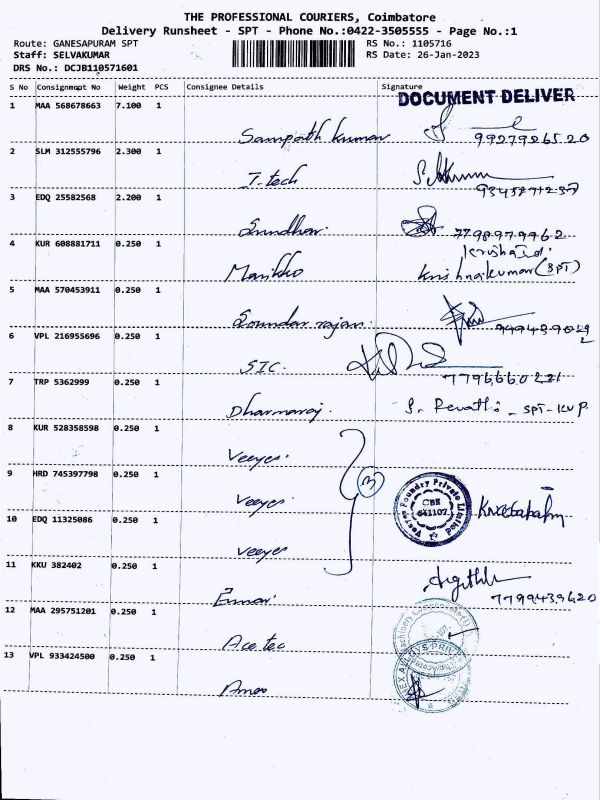 THE PROFESSIONAL COURIERS, Coimbatore
Delivery Runsheet - SPT - Phone No.:0422-3505555 - Page No.:1
Route: GANESAPURAM SPT RS No.: 1105716
Staff: SELVAKUMAR RS Date: 26-Jan-2023
DRS No.: DCJB110571601
S No Consignment No Weight PCS Consignee Details Signature
DOCUMENT DELIVER
1 MAA 568678663 7.100 1
Sampath kumar 9927926520
2 SLM 312555796 2.300 1
I-tech 9345871237
3 EDQ 25582568 2.200 1
Sundhar. 7798979962
4 KUR 608881711 0.250 1
Marikko Krishnakumar (SPT)
5 MAA 570453911 0.250 1
Soundar rajan. 999439029
6 VPL 216955696 0.250 1
SIC. 7796660221
7 TRP 5362999 0.250 1
Dharmaraj. S. Revathi - SPT-KVP
8 KUR 528358598 0.250 1
Veeyes.
9 HRD 745397798 0.250 1
Veeyes. 3 Veeyes Foundry Private Limited CBE 641107
10 EDQ 11325086 0.250 1
Veeyes
11 KKU 382402 0.250 1
7799439620
12 MAA 295751201 0.250 1
Ace tec
13 VPL 933424500 0.250 1